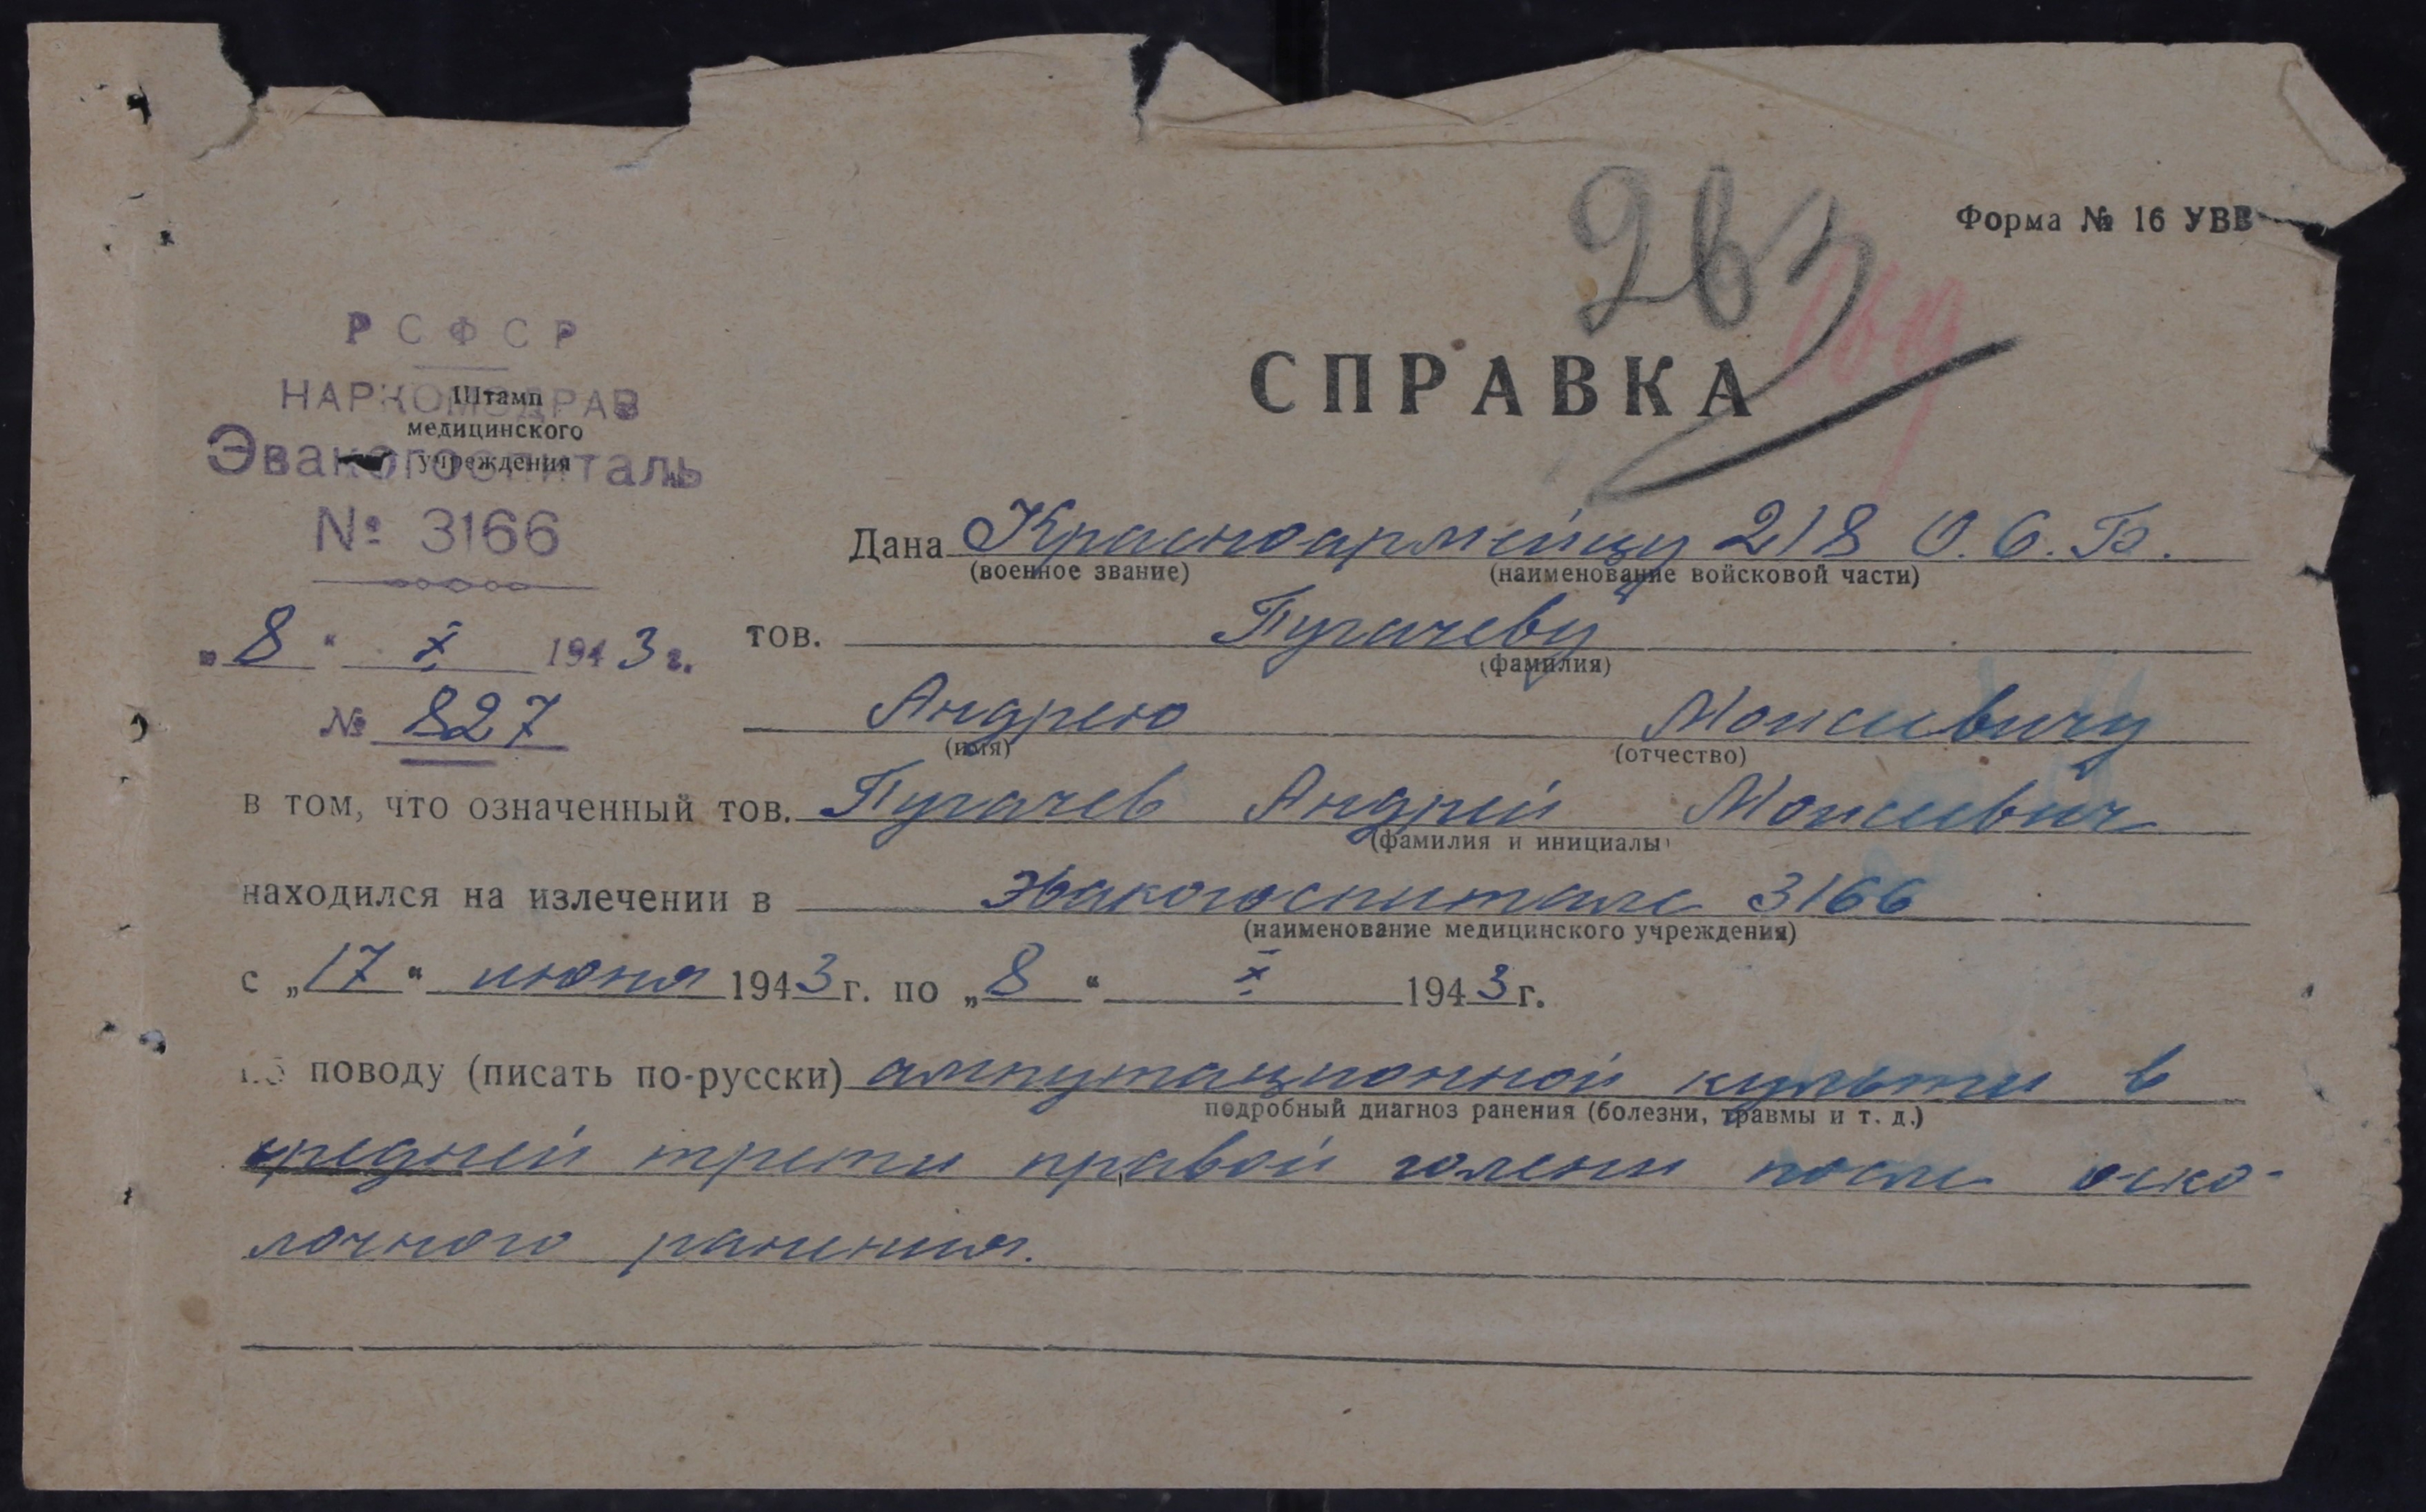 263
169
Форма № 16 УВВ
РСФСР
НАРКОМЗДРАВ
Эвакогоспиталь
№ 3166
Штамп
медицинского
учреждения
СПРАВКА
Дана Красноармейцу 218 О.С.Б.
(военное звание) (наименование войсковой части)
„8“ X 1943 г.
тов. Пугачеву
(фамилия)
№ 827
Андрею Моисеевичу
(имя) (отчество)
в том, что означенный тов. Пугачев Андрей Моисеевич
(фамилия и инициалы)
находился на излечении в Эвакогоспитале 3166
(наименование медицинского учреждения)
с „17“ июня 1943 г. по „8“ X 1943 г.
по поводу (писать по-русски) ампутационной культи в
подробный диагноз ранения (болезни, травмы и т. д.)
средней трети правой голени после оско-
лочного ранения.